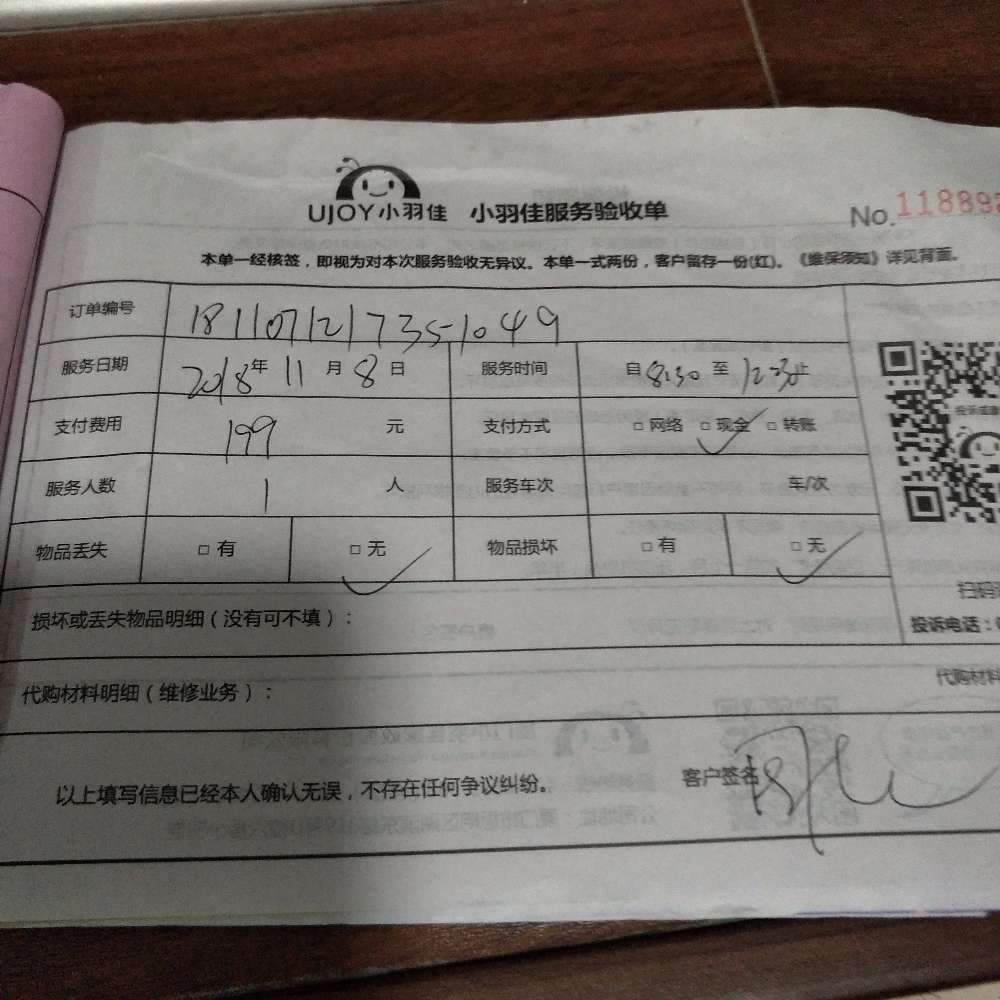 UJOY小羽佳 小羽佳服务验收单 No.118898
本单一经核签，即视为对本次服务验收无异议。本单一式两份，客户留存一份(红)。《维保须知》详见背面。
订单编号 1811071217351049
服务日期 2018年11月8日 服务时间 自8:30至12:30止
支付费用 199 元 支付方式 □网络 □现金 □转账
服务人数 1 人 服务车次 车/次
物品丢失 □有 □无 物品损坏 □有 □无
扫码
损坏或丢失物品明细（没有可不填）： 投诉电话：0
代购材料明细（维修业务）： 代购材料
以上填写信息已经本人确认无误，不存在任何争议纠纷。 客户签名